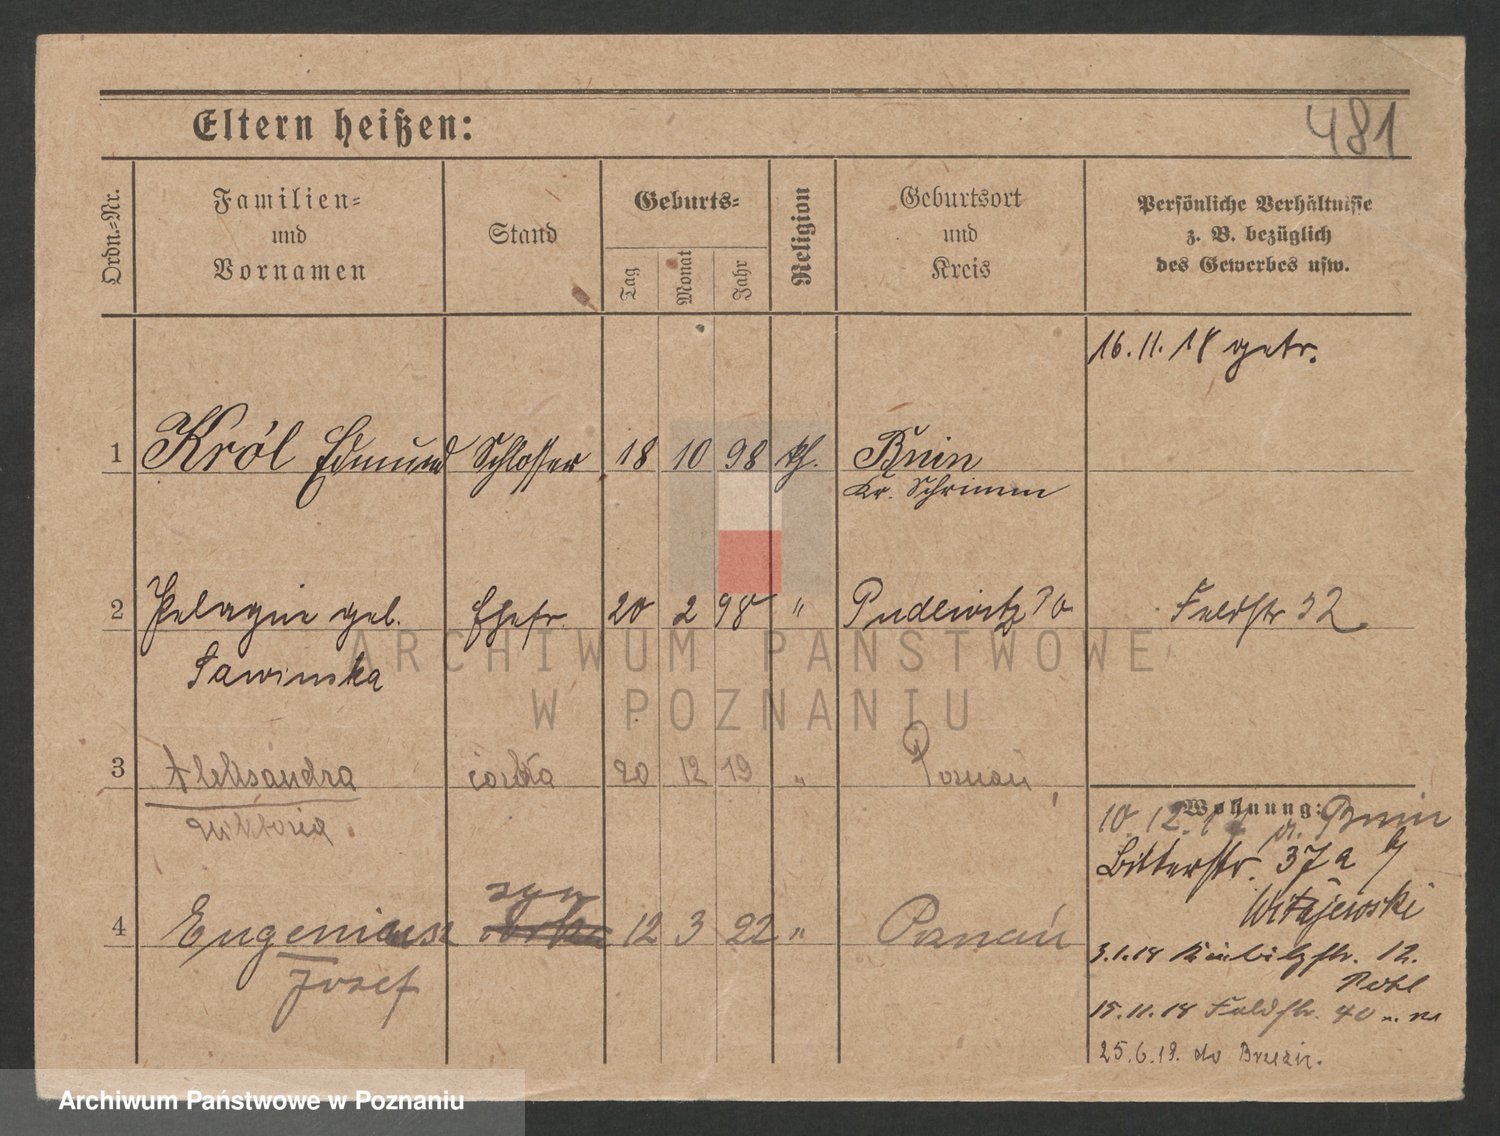 Eltern heißen:
481
Ordn.-Nr.
Familien-
und
Vornamen
Stand
Geburts-
Tag
Monat
Jahr
Religion
Geburtsort
und
Kreis
Persönliche Verhältnisse
z. B. bezüglich
des Gewerbes usw.
16.11.18 getr.
1 Król Edmund Schlosser 18 10 98 kth. Bnin
Kr. Schrimm
2 Pelagie geb. Ehefr. 20 2 98 " Pudewitz Feldstr 32
Sawinska
3 Aleksandra córka 20 12 19 " Poznań
Wiktoria
Wohnung:
10.12.17 v. Bnin
Bitterstr. 37a b/
Witajewski
syn
4 Eugeniusz 12 3 22 " Poznań
Josef
3.1.18 12.
Pohl
15.11.18 Feldstr. 40
25.6.19. do
ARCHIWUM PAŃSTWOWE
W POZNANIU
Archiwum Państwowe w Poznaniu